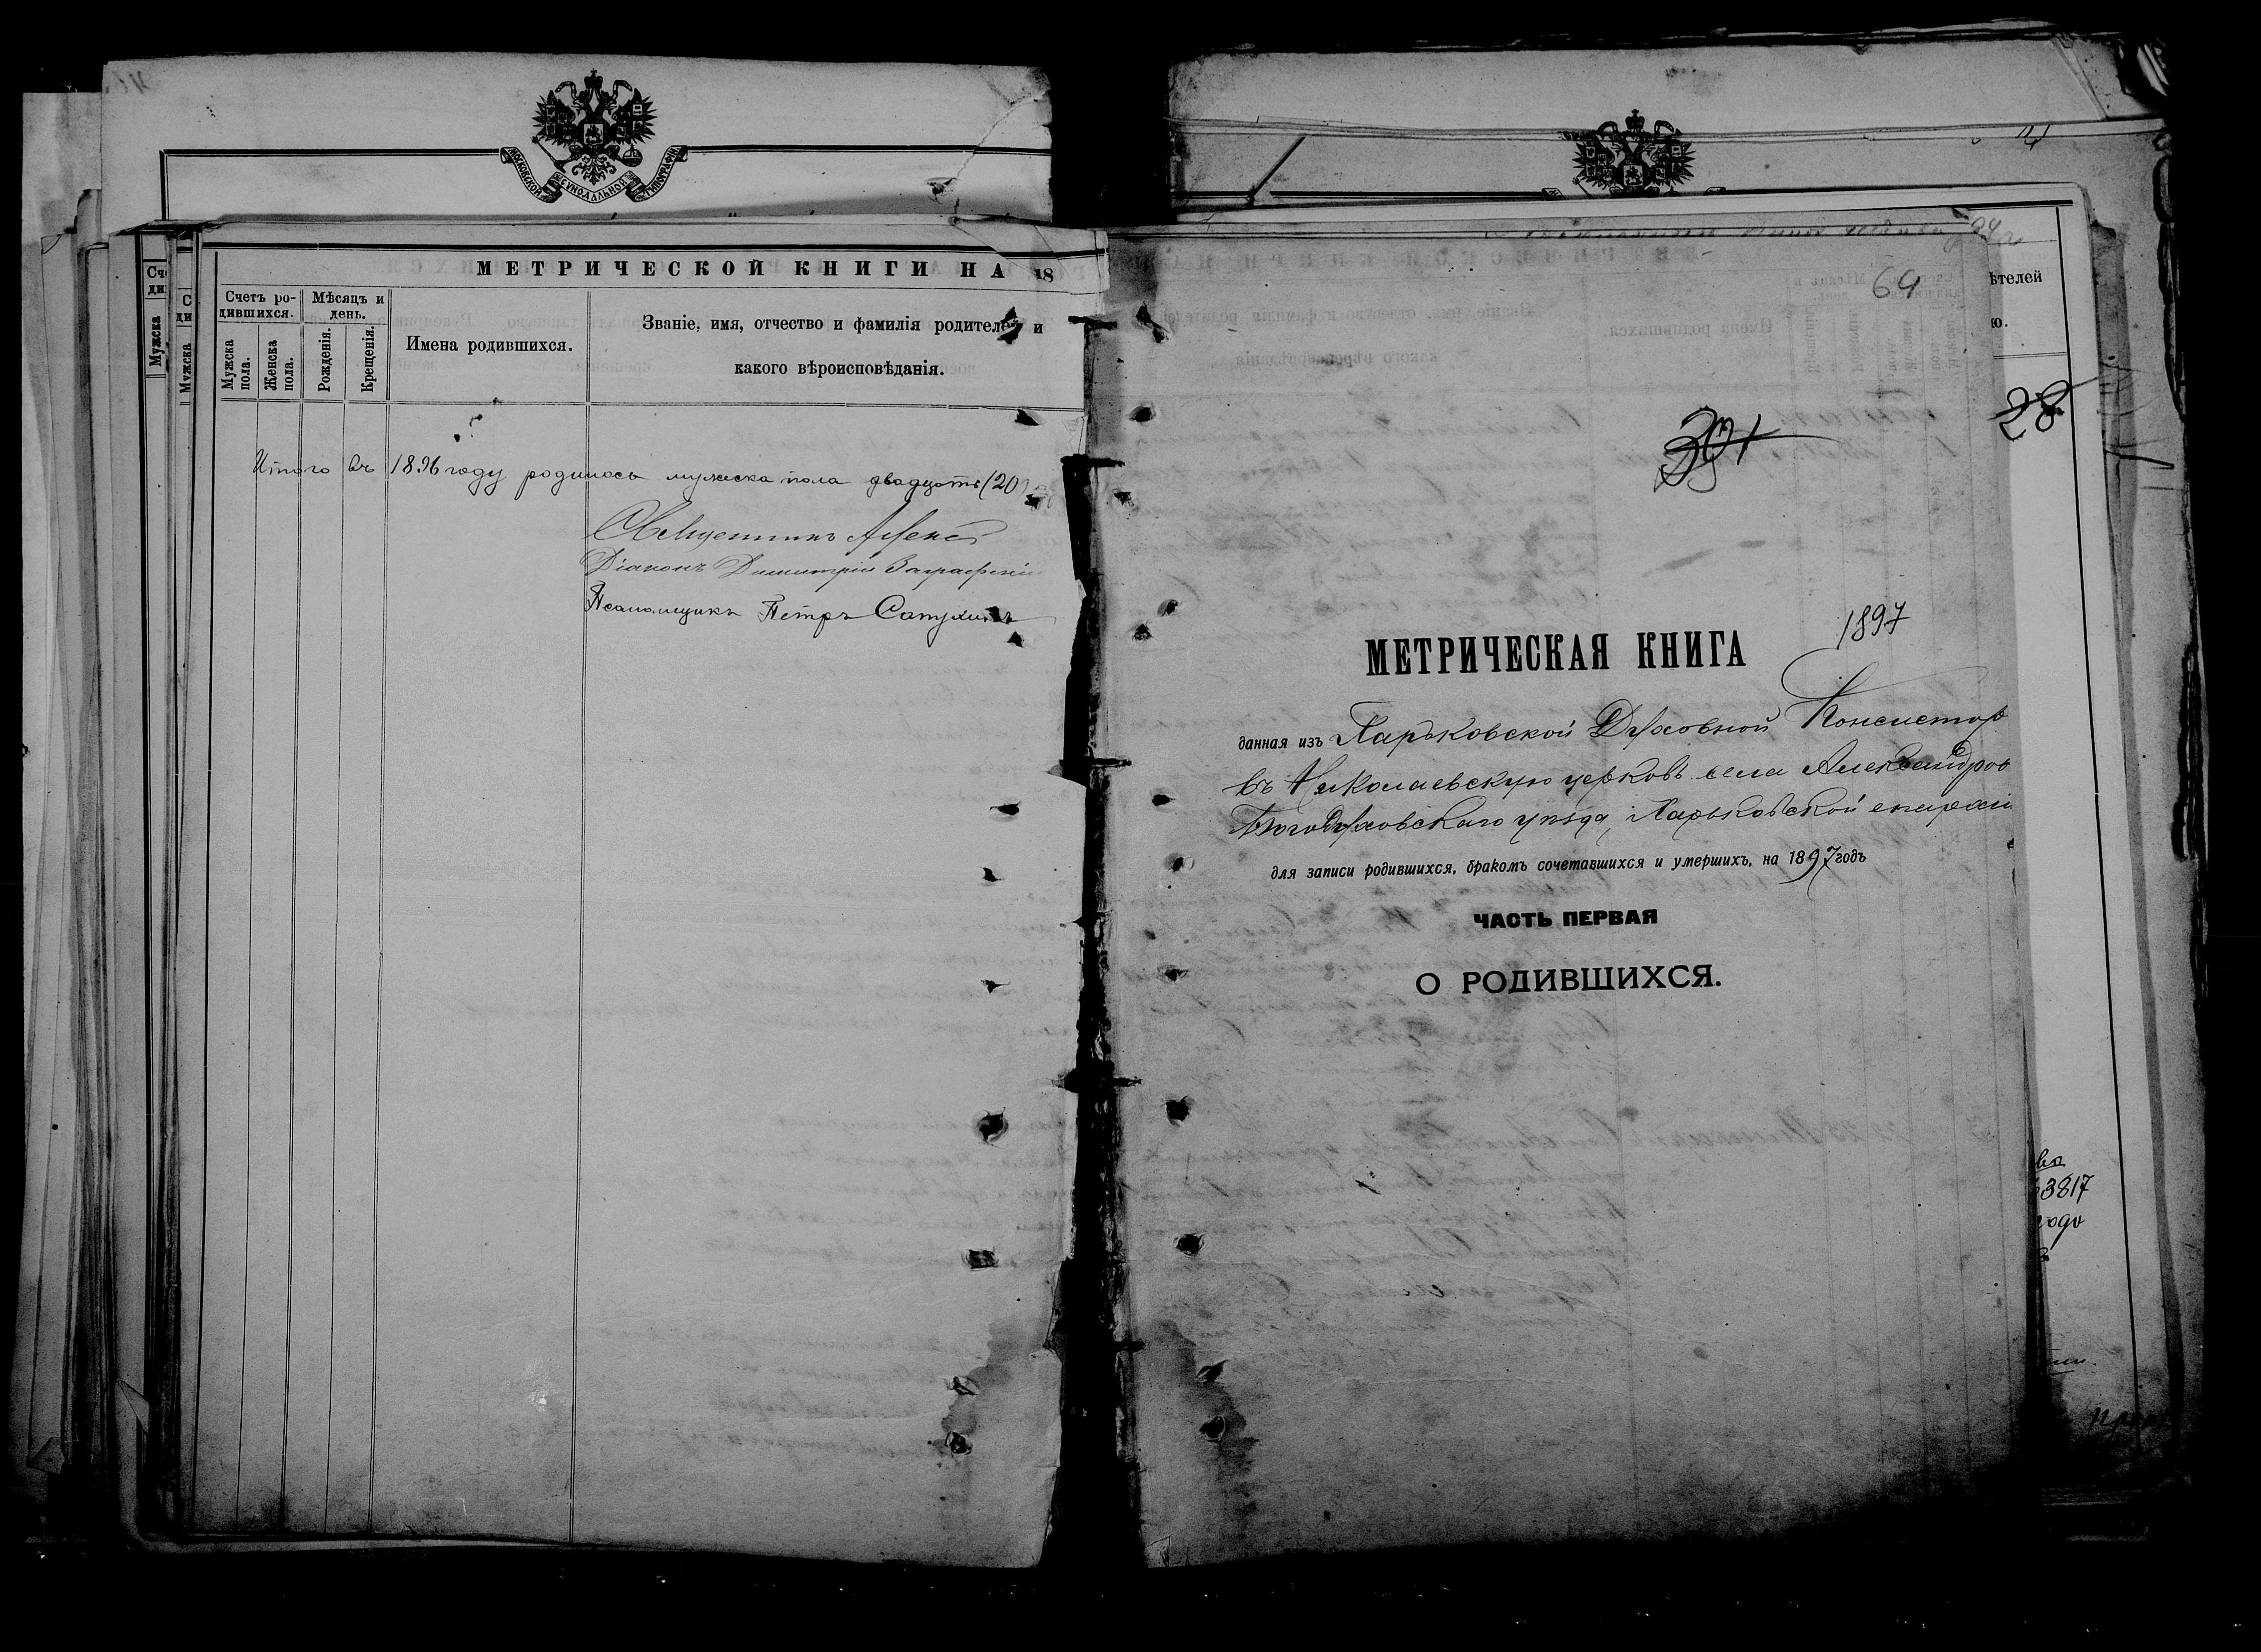 МОСКОВСКОЙ СУНОДАЛЬНОЙ ТИПОГРАФІИ
МЕТРИЧЕСКОЙ КНИГИ НА 18
Счетъ ро-
дившихся.
Мѣсяцъ и
день.
Мужска
пола.
Женска
пола.
Рожденія.
Крещенія.
Имена родившихся.
Званіе, имя, отчество и фамилія родителей и
какого вѣроисповѣданія.
Итого въ 1896 году родилось мужеска пола двадцать (20)
Священникъ Алекс
Діаконъ Димитрій
Псаломщикъ Петръ
64
28
1897
МЕТРИЧЕСКАЯ КНИГА
данная изъ Харьковской Духовной Консистор
въ Николаевскую церковь села Александров
Богодуховскаго уѣзда, Харьковской епархіи
для записи родившихся, бракомъ сочетавшихся и умершихъ, на 1897 годъ
ЧАСТЬ ПЕРВАЯ
О РОДИВШИХСЯ.
ѣтелей
ю.
ва
3817
года